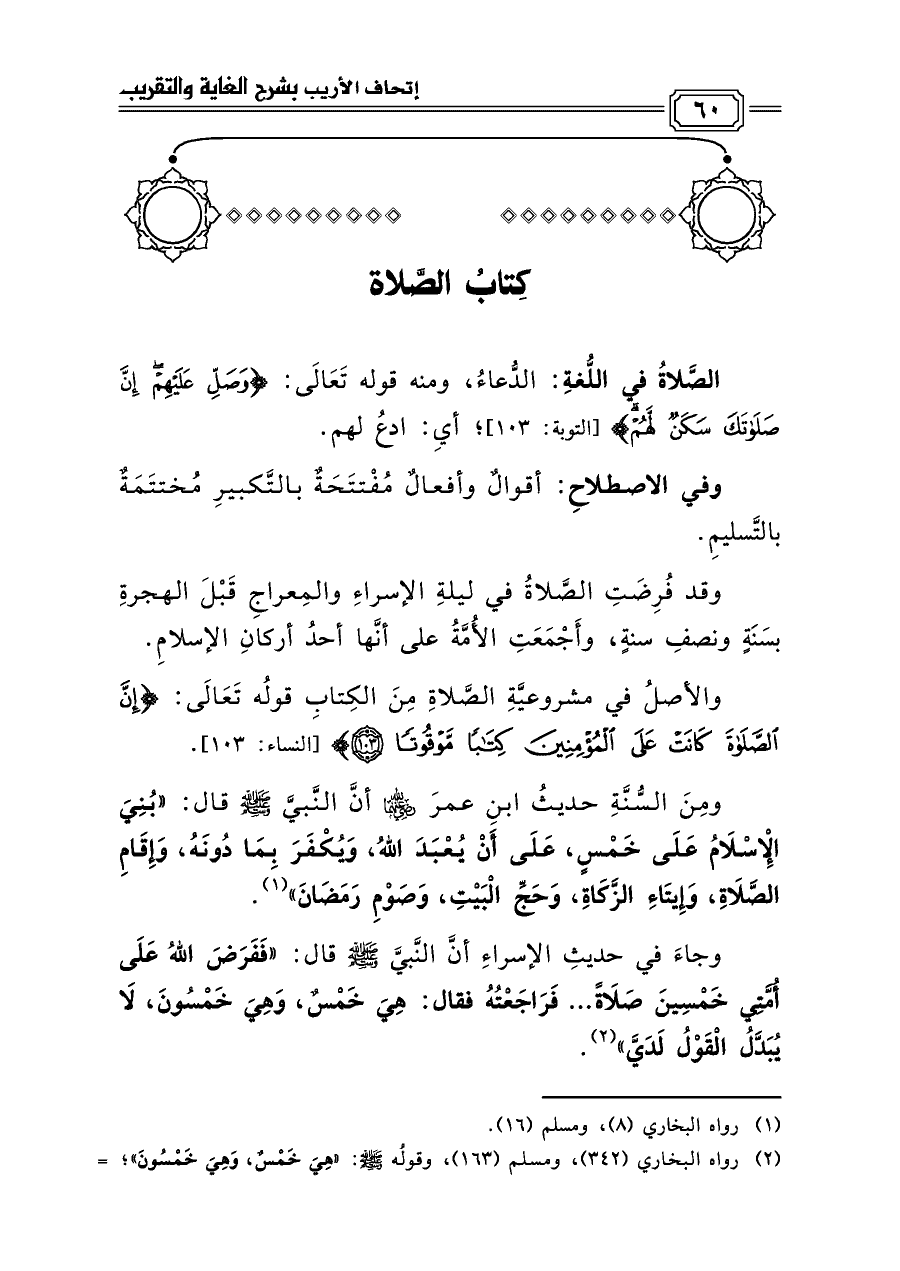 إتحاف الأريب بشرح الغاية والتقريب
٦٠
كِتابُ الصَّلاة
الصَّلاةُ في اللُّغةِ: الدُّعاءُ، ومنه قوله تَعَالَى: ﴿وَصَلِّ عَلَيۡهِمۡۖ إِنَّ
صَلَوٰتَكَ سَكَنٞ لَّهُمۡۗ﴾ [التوبة: ١٠٣]؛ أيِ: ادعُ لهم.
وفي الاصطلاحِ: أقوالٌ وأفعالٌ مُفْتتَحَةٌ بالتَّكبيرِ مُختتَمَةٌ
بالتَّسليمِ.
وقد فُرِضَتِ الصَّلاةُ في ليلةِ الإسراءِ والمِعراجِ قَبْلَ الهجرةِ
بسَنَةٍ ونصفِ سنةٍ، وأَجْمَعَتِ الأُمَّةُ على أنَّها أحدُ أركانِ الإسلامِ.
والأصلُ في مشروعيَّةِ الصَّلاةِ مِنَ الكِتابِ قولُه تَعَالَى: ﴿إِنَّ
ٱلصَّلَوٰةَ كَانَتۡ عَلَى ٱلۡمُؤۡمِنِينَ كِتَٰبٗا مَّوۡقُوتٗا ١٠٣﴾ [النساء: ١٠٣].
ومِنَ السُّنَّةِ حديثُ ابنِ عمرَ رضي الله عنهما أنَّ النَّبيَّ ﷺ قال: «بُنِيَ
الْإِسْلَامُ عَلَى خَمْسٍ، عَلَى أَنْ يُعْبَدَ اللهُ، وَيُكْفَرَ بِمَا دُونَهُ، وَإِقَامِ
الصَّلَاةِ، وَإِيتَاءِ الزَّكَاةِ، وَحَجِّ الْبَيْتِ، وَصَوْمِ رَمَضَانَ»(١).
وجاءَ في حديثِ الإسراءِ أنَّ النَّبيَّ ﷺ قال: «فَفَرَضَ اللهُ عَلَى
أُمَّتِي خَمْسِينَ صَلَاةً... فَرَاجَعْتُهُ فقال: هِيَ خَمْسٌ، وَهِيَ خَمْسُونَ، لَا
يُبَدَّلُ الْقَوْلُ لَدَيَّ»(٢).
(١) رواه البخاري (٨)، ومسلم (١٦).
(٢) رواه البخاري (٣٤٢)، ومسلم (١٦٣)، وقولُه ﷺ: «هِيَ خَمْسٌ، وَهِيَ خَمْسُونَ»؛ =